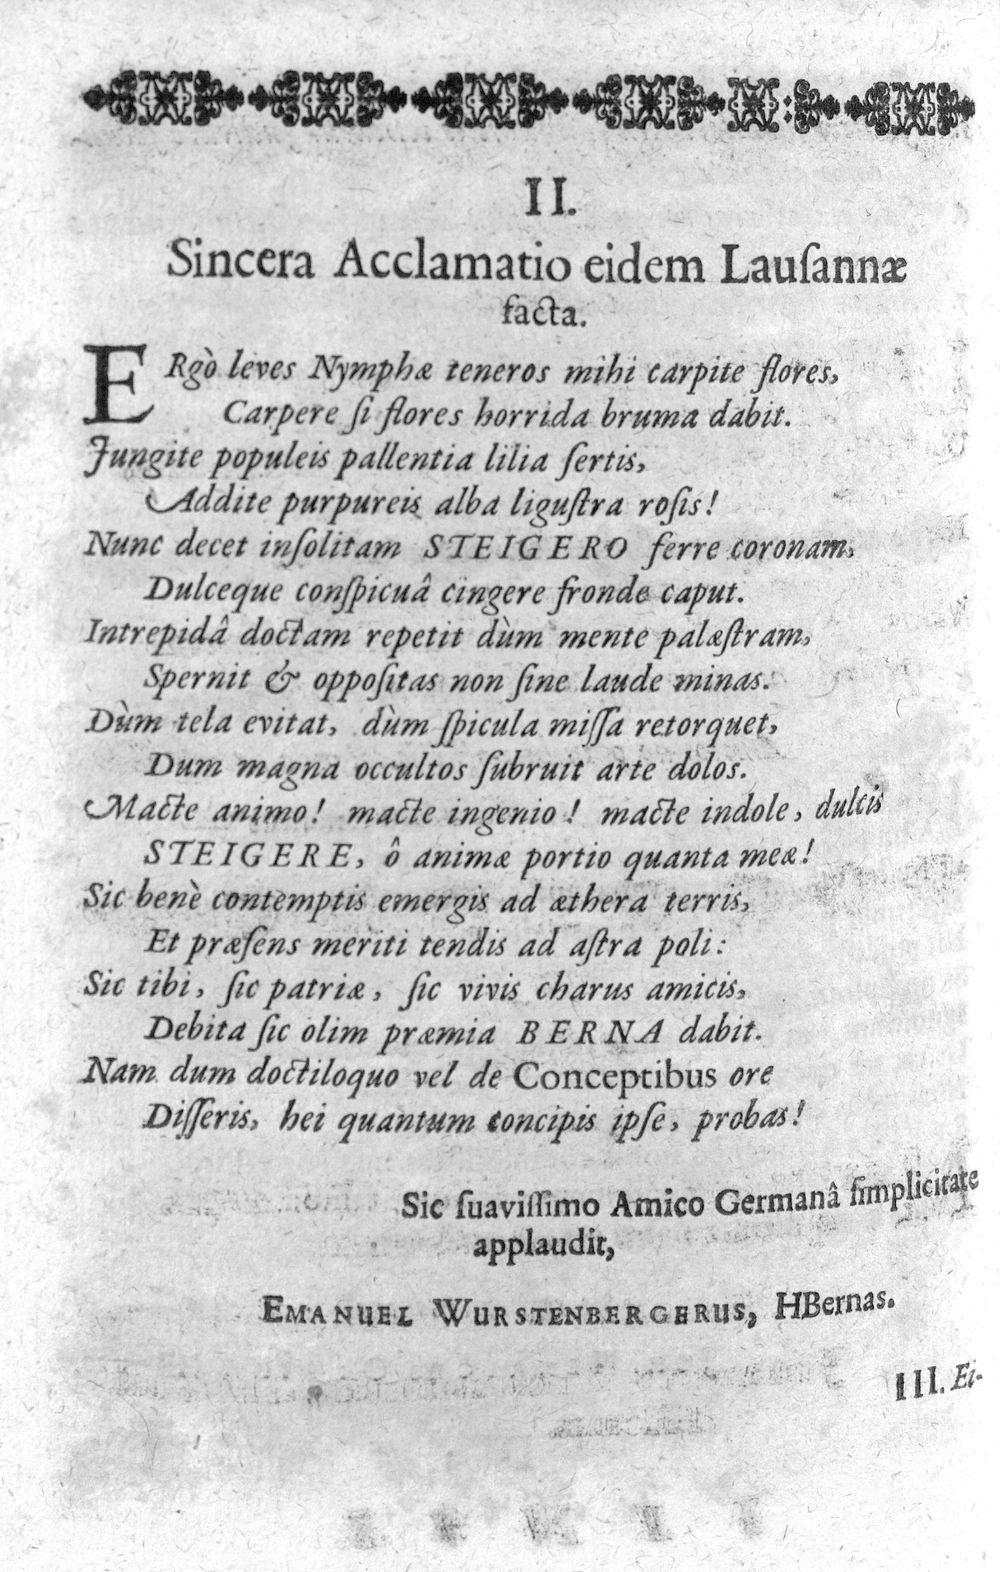 II.
Sincera Acclamatio eidem Lauſannæ
facta.
ERgò leves Nymphæ teneros mihi carpite flores,
Carpere ſi flores horrida bruma dabit.
Jungite populeis pallentia lilia ſertis,
Addite purpureis alba liguſtra roſis!
Nunc decet inſolitam STEIGERO ferre coronam,
Dulceque conſpicuâ cingere fronde caput.
Intrepidâ doctam repetit dùm mente palæſtram,
Spernit & oppoſitas non ſine laude minas.
Dùm tela evitat, dùm ſpicula miſſa retorquet,
Dum magna occultos ſubruit arte dolos.
Macte animo! macte ingenio! macte indole, dulcis
STEIGERE, ô animæ portio quanta meæ!
Sic benè contemptis emergis ad æthera terris,
Et præſens meriti tendis ad aſtra poli:
Sic tibi, ſic patriæ, ſic vivis charus amicis,
Debita ſic olim præmia BERNA dabit.
Nam dum doctiloquo vel de Conceptibus ore
Diſſeris, hei quantum concipis ipſe, probas!
Sic ſuaviſſimo Amico Germanâ ſimplicitate
applaudit,
EMANUEL WURSTENBERGERUS, HBernas.
III. Ei-